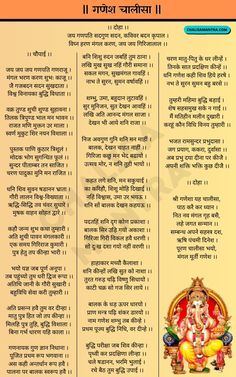 || गणेश चालीसा ||
|| दोहा ||
CHALISAMANTRA.COM
जय गणपति सदगुण सदन, कविवर बदन कृपाल
विघ्न हरण मंगल करण, जय जय गिरिजालाल ||
|| चौपाई ||
जय जय जय गणपति गणराजू
मंगल भरण करण शुभः काजू ||
जै गजबदन सदन सुखदाता
विश्व विनायका बुद्धि विधाता ||
वक्र तुण्ड शुची शुण्ड सुहावना
तिलक त्रिपुण्ड भाल मन भावन ||
राजत मणि मुक्तन उर माला
स्वर्ण मुकुट शिर नयन विशाला ||
पुस्तक पाणि कुठार त्रिशूलं
मोदक भोग सुगन्धित फूलं ||
सुन्दर पीताम्बर तन साजित
चरण पादुका मुनि मन राजित ||
धनि शिव सुवन षडानन भ्राता
गौरी लालन विश्व-विख्याता ||
ऋद्धि-सिद्धि तव चंवर सुधारे
मुषक वाहन सोहत द्वारे ||
कहो जन्म शुभ कथा तुम्हारी
अति शुची पावन मंगलकारी ||
एक समय गिरिराज कुमारी
पुत्र हेतु तप कीन्हा भारी ||
भयो यज्ञ जब पूर्ण अनूपा
तब पहुंच्यो तुम धरी द्विज रूपा ||
अतिथि जानी के गौरी सुखारी
बहुविधि सेवा करी तुम्हारी ||
अति प्रसन्न हवै तुम वर दीन्हा
मातु पुत्र हित जो तप कीन्हा ||
मिलहि पुत्र तुहि, बुद्धि विशाला
बिना गर्भ धारण यहि काला ||
गणनायक गुण ज्ञान निधाना
पूजित प्रथम रूप भगवाना ||
अस कही अन्तर्धान रूप हवै
पालना पर बालक स्वरूप हवै ||
बनि शिशु रुदन जबहिं तुम ठाना
लखि मुख सुख नहिं गौरी समाना ||
सकल मगन, सुखमंगल गावहिं
नाभ ते सुरन, सुमन वर्षावहिं ||
शम्भु, उमा, बहुदान लुटावहिं
सुर मुनिजन, सुत देखन आवहिं ||
लखि अति आनन्द मंगल साजा
देखन भी आये शनि राजा ||
निज अवगुण गुनि शनि मन माहीं
बालक, देखन चाहत नाहीं ||
गिरिजा कछु मन भेद बढायो
उत्सव मोर, न शनि तुही भायो ||
कहत लगे शनि, मन सकुचाई
का करिहौ, शिशु मोहि दिखाई ||
नहिं विश्वास, उमा उर भयऊ
शनि सों बालक देखन कहयऊ ||
पदतहिं शनि दृग कोण प्रकाशा
बालक सिर उड़ि गयो अकाशा ||
गिरिजा गिरी विकल हवै धरणी
सो दुःख दशा गयो नहीं वरणी ||
हाहाकार मच्यौ कैलाशा
शनि कीन्हों लखि सुत को नाशा ||
तुरत गरुड़ चढ़ि विष्णु सिधायो
काटी चक्र सो गज सिर लाये ||
बालक के धड़ ऊपर धारयो
प्राण मन्त्र पढ़ि शंकर डारयो ||
नाम गणेश शम्भु तब कीन्हे
प्रथम पूज्य बुद्धि निधि, वर दीन्हे ||
बुद्धि परीक्षा जब शिव कीन्हा
पृथ्वी कर प्रदक्षिणा लीन्हा ||
चले षडानन, भरमि भुलाई
रचे बैठ तुम बुद्धि उपाई ||
चरण मातु-पितु के धर लीन्हें
तिनके सात प्रदक्षिण कीन्हें ||
धनि गणेश कही शिव हिये हरषे
नभ ते सुरन सुमन बहु बरसे ||
तुम्हरी महिमा बुद्धि बड़ाई
शेष सहसमुख सके न गाई ||
मैं मतिहीन मलीन दुखारी
करहूं कौन विधि विनय तुम्हारी ||
भजत रामसुन्दर प्रभुदासा
जग प्रयाग, ककरा, दुर्वासा ||
अब प्रभु दया दीना पर कीजै
अपनी शक्ति भक्ति कुछ दीजै ||
|| दोहा ||
श्री गणेश यह चालीसा,
पाठ करै कर ध्यान |
नित नव मंगल गृह बसै,
लहे जगत सन्मान ||
सम्बन्ध अपने सहस्त्र दश,
ऋषि पंचमी दिनेश |
पूरण चालीसा भयो,
मंगल मूर्ती गणेश ||